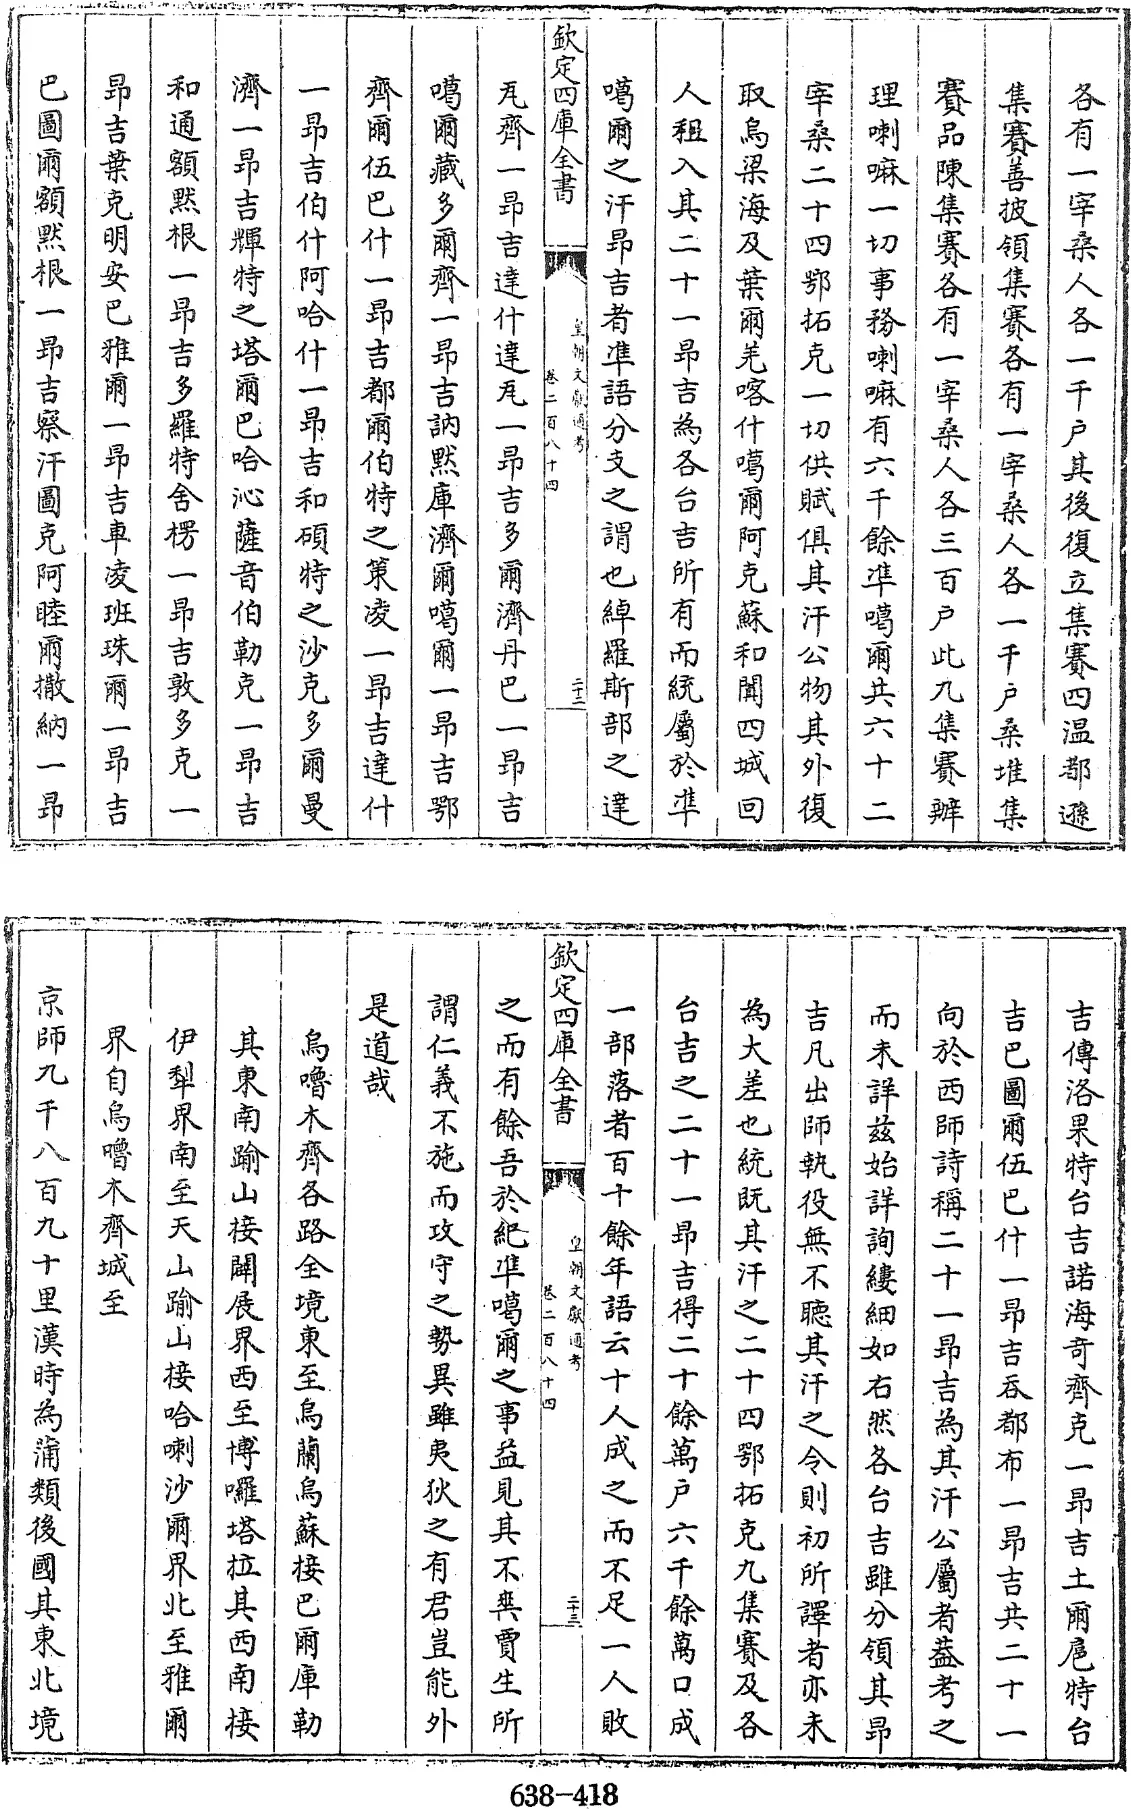 各有一宰桑人各一千户其後復立集賽四温都遜
集賽善披領集賽各有一宰桑人各一千户桑堆集
賽品陳集賽各有一宰桑人各三百户此九集賽辦
理喇嘛一切事務喇嘛有六千餘凖噶爾共六十二
宰桑二十四鄂拓克一切供賦俱其汗公物其外復
取烏梁海及葉爾羌喀什噶爾阿克蘇和闐四城回
人租入其二十一昂吉為各台吉所有而統屬於凖
噶爾之汗昂吉者凖語分支之謂也綽羅斯部之達
欽定四庫全書
皇朝文獻通考
卷二百八十四
二十二
瓦齊一昂吉達什達瓦一昂吉多爾濟丹巴一昂吉
噶爾藏多爾齊一昂吉訥黙庫濟爾噶爾一昂吉鄂
齊爾伍巴什一昂吉都爾伯特之策凌一昂吉達什
一昂吉伯什阿哈什一昂吉和碩特之沙克多爾曼
濟一昂吉輝特之塔爾巴哈沁薩音伯勒克一昂吉
和通額黙根一昂吉多羅特舍楞一昂吉敦多克一
昂吉葉克明安巴雅爾一昂吉車凌班珠爾一昂吉
巴圖爾額黙根一昂吉察汗圖克阿睦爾撒納一昂
吉傳洛果特台吉諾海奇齊克一昂吉土爾扈特台
吉巴圖爾伍巴什一昂吉吞都布一昂吉共二十一
向於西師詩稱二十一昂吉為其汗公屬者葢考之
而未詳兹始詳詢縷細如右然各台吉雖分領其昂
吉凡出師執役無不聽其汗之令則初所譯者亦未
為大差也統既其汗之二十四鄂拓克九集賽及各
台吉之二十一昂吉得二十餘萬户六千餘萬口成
一部落者百十餘年語云十人成之而不足一人敗
欽定四庫全書
皇朝文獻通考
卷二百八十四
二十三
之而有餘吾於紀凖噶爾之事益見其不爽賈生所
謂仁義不施而攻守之勢異雖夷狄之有君豈能外
是道哉
烏嚕木齊各路全境東至烏蘭烏蘇接巴爾庫勒
其東南踰山接闢展界西至博囉塔拉其西南接
伊犁界南至天山踰山接哈喇沙爾界北至雅爾
界自烏嚕木齊城至
京師九千八百九十里漢時為蒲類後國其東北境
638-418